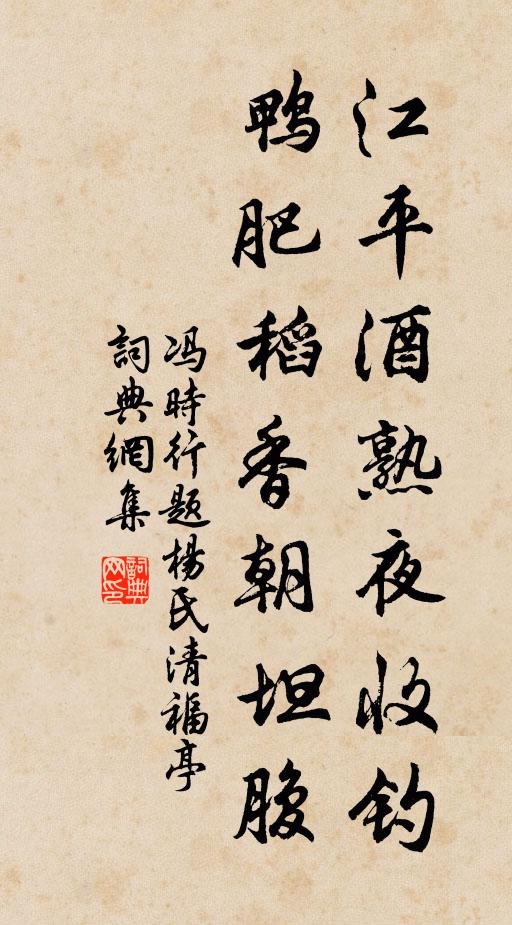 江平酒熟夜收钓
鸭肥稻香朝坦腹
冯時行题楊氏清福亭
詞典網集
詞典網印